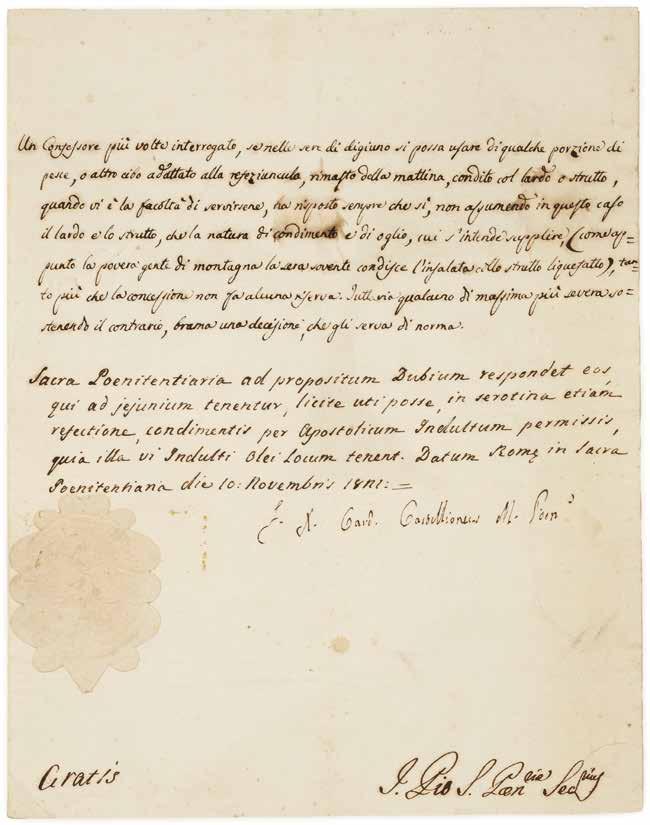 Un Confessore più volte interrogato, se nelle sere di digiuno si possa usare di qualche porzione di
pesce, o altro cibo adattato alla refeziuncula, rimasto della mattina, condito col lardo o strutto,
quando vi è la facoltà di servirsene, ha risposto sempre che sì, non assumendo in questo caso
il lardo e lo strutto, che la natura di condimento e di oglio, cui s'intende supplire, (come ap=
punto la povera gente di montagna la sera sovente condisce l'insalata collo strutto liquefatto), tan=
to più che la concessione non fa alcuna riserva. Tuttavia qualcuno di massima più severa so=
stenendo il contrario, brama una decisione, che gli serva di norma.
Sacra Poenitentiaria ad propositum Dubium respondet eos,
qui ad jejunium tenentur, licite uti posse, in serotina etiam
refectione, condimentis per Apostolicum Indultum permissis,
quia illa vi Indulti Olei Locum tenent. Datum Romę in Sacra
Poenitentiaria die 10: Novembris 1821:=
Card. Castillioneus M. Poen
Gratis
Pio S. Pœn.ria Sec.rius